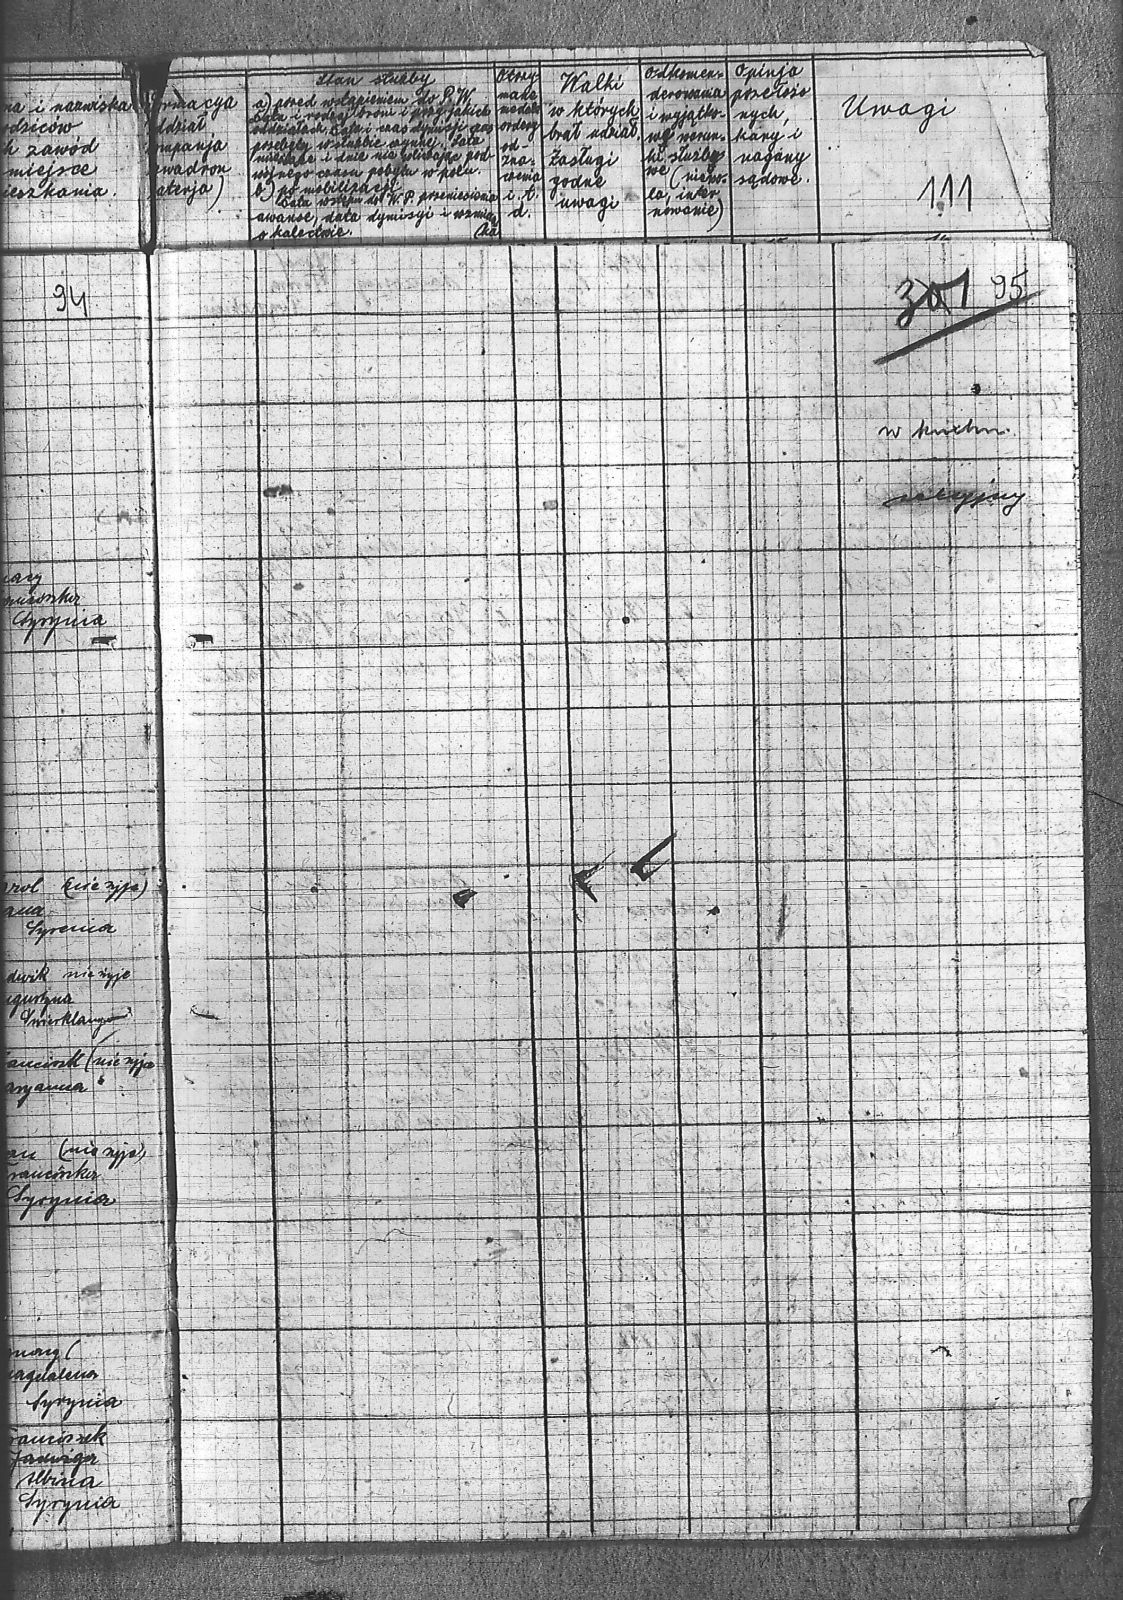 na i nazwiska
dziców
zawód
miejsce
eszkania.
ormacya
ddział
mpanja
wadron
aterja)
Stan służby
a) przed wstąpieniem do P.W.
i rodzaj broni i przy jakich
oddziałach, i czas dymisji czas
przebyty w służbie czynnej. Lata
miesiące i dnie nie wliczając pod
wojnego czasu pobytu w polu.
b) po mobilizacji
Data wstępu do W.P. przeniesienia
awanse, data dymisyi i wzmian
o kalectwie. (ka
Otrzy-
mane
medale
ordery
od-
zna-
czenia
i. t.
d.
Walki
w których
brał udział
Zasługi
godne
uwagi
Odkomen-
derowania
i wyjątko-
we warun-
ki służbo
we (niewo-
la, inter-
nowanie)
Opinja
przełożo
nych,
kary i
nagany
sądowe.
Uwagi
111
94
301 95
w kuchni.
Syrynia
rol (nie żyje)
Syrenia
dwik nie żyje
ugustyna
anciszk (nie żyje
aryanna
an (nie żyje)
ranciszka
Syrynia
agdalena
Syrynia
ranciszek
Jadwiga
Albina
Syrynia